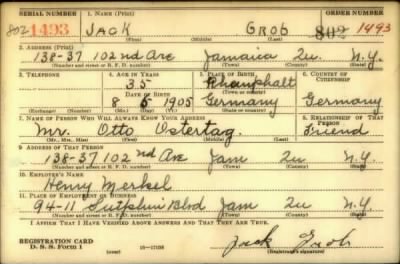 SERIAL NUMBER 1. NAME (Print) ORDER NUMBER
802 1493 JACK GROB 802 1493
(First) (Middle) (Last)
2. ADDRESS (Print)
138-37 102nd Ave Jamaica Qu N.Y.
(Number and street or R. F. D. number) (Town) (County) (State)
3. TELEPHONE 4. AGE IN YEARS 5. PLACE OF BIRTH 6. COUNTRY OF CITIZENSHIP
35
(Town or county)
DATE OF BIRTH
8 5 1905 Germany Germany
(Exchange) (Number) (Mo.) (Day) (Yr.) (State or country)
7. NAME OF PERSON WHO WILL ALWAYS KNOW YOUR ADDRESS 8. RELATIONSHIP OF THAT PERSON
Mr. Otto Ostertag. Friend
(Mr., Mrs., Miss) (First) (Middle) (Last)
9. ADDRESS OF THAT PERSON
138-37 102nd Ave Jam Qu N.Y.
(Number and street or R. F. D. number) (Town) (County) (State)
10. EMPLOYER'S NAME
Henry Merkel
11. PLACE OF EMPLOYMENT OR BUSINESS
94-11 Sutphin Blvd Jam Qu N.Y.
(Number and street or R. F. D. number) (Town) (County) (State)
I AFFIRM THAT I HAVE VERIFIED ABOVE ANSWERS AND THAT THEY ARE TRUE.
REGISTRATION CARD
D. S. S. FORM 1 Jack Grob
(Registrant's signature)